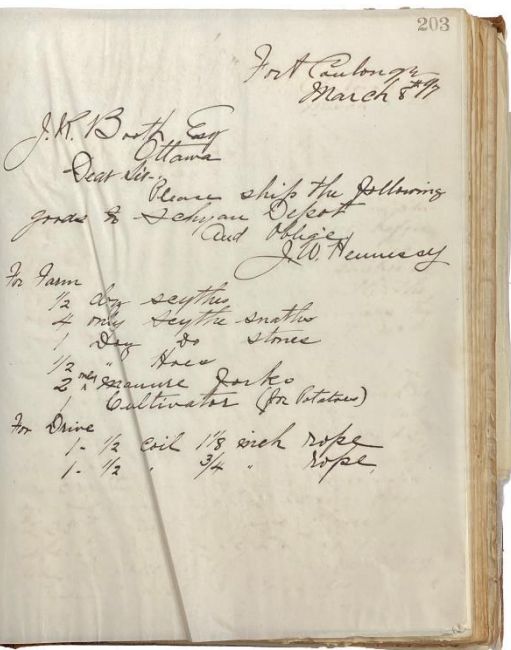 203
Fort Coulonge
March 8th 97
J. R. Booth Esq
Ottawa
Dear Sir.
Please ship the following
goods to Schyan Depot
and oblige
J. W. Hennessy
For Farm
1/2 doz scythes
4 only scythe snaths
1 Doz Do stones
1/2 " Hoes
2 only manure Forks
1 Cultivator (for Potatoes)
For Drive
1- 1/2 coil 1 1/8 inch rope
1- 1/2 " 3/4 " rope